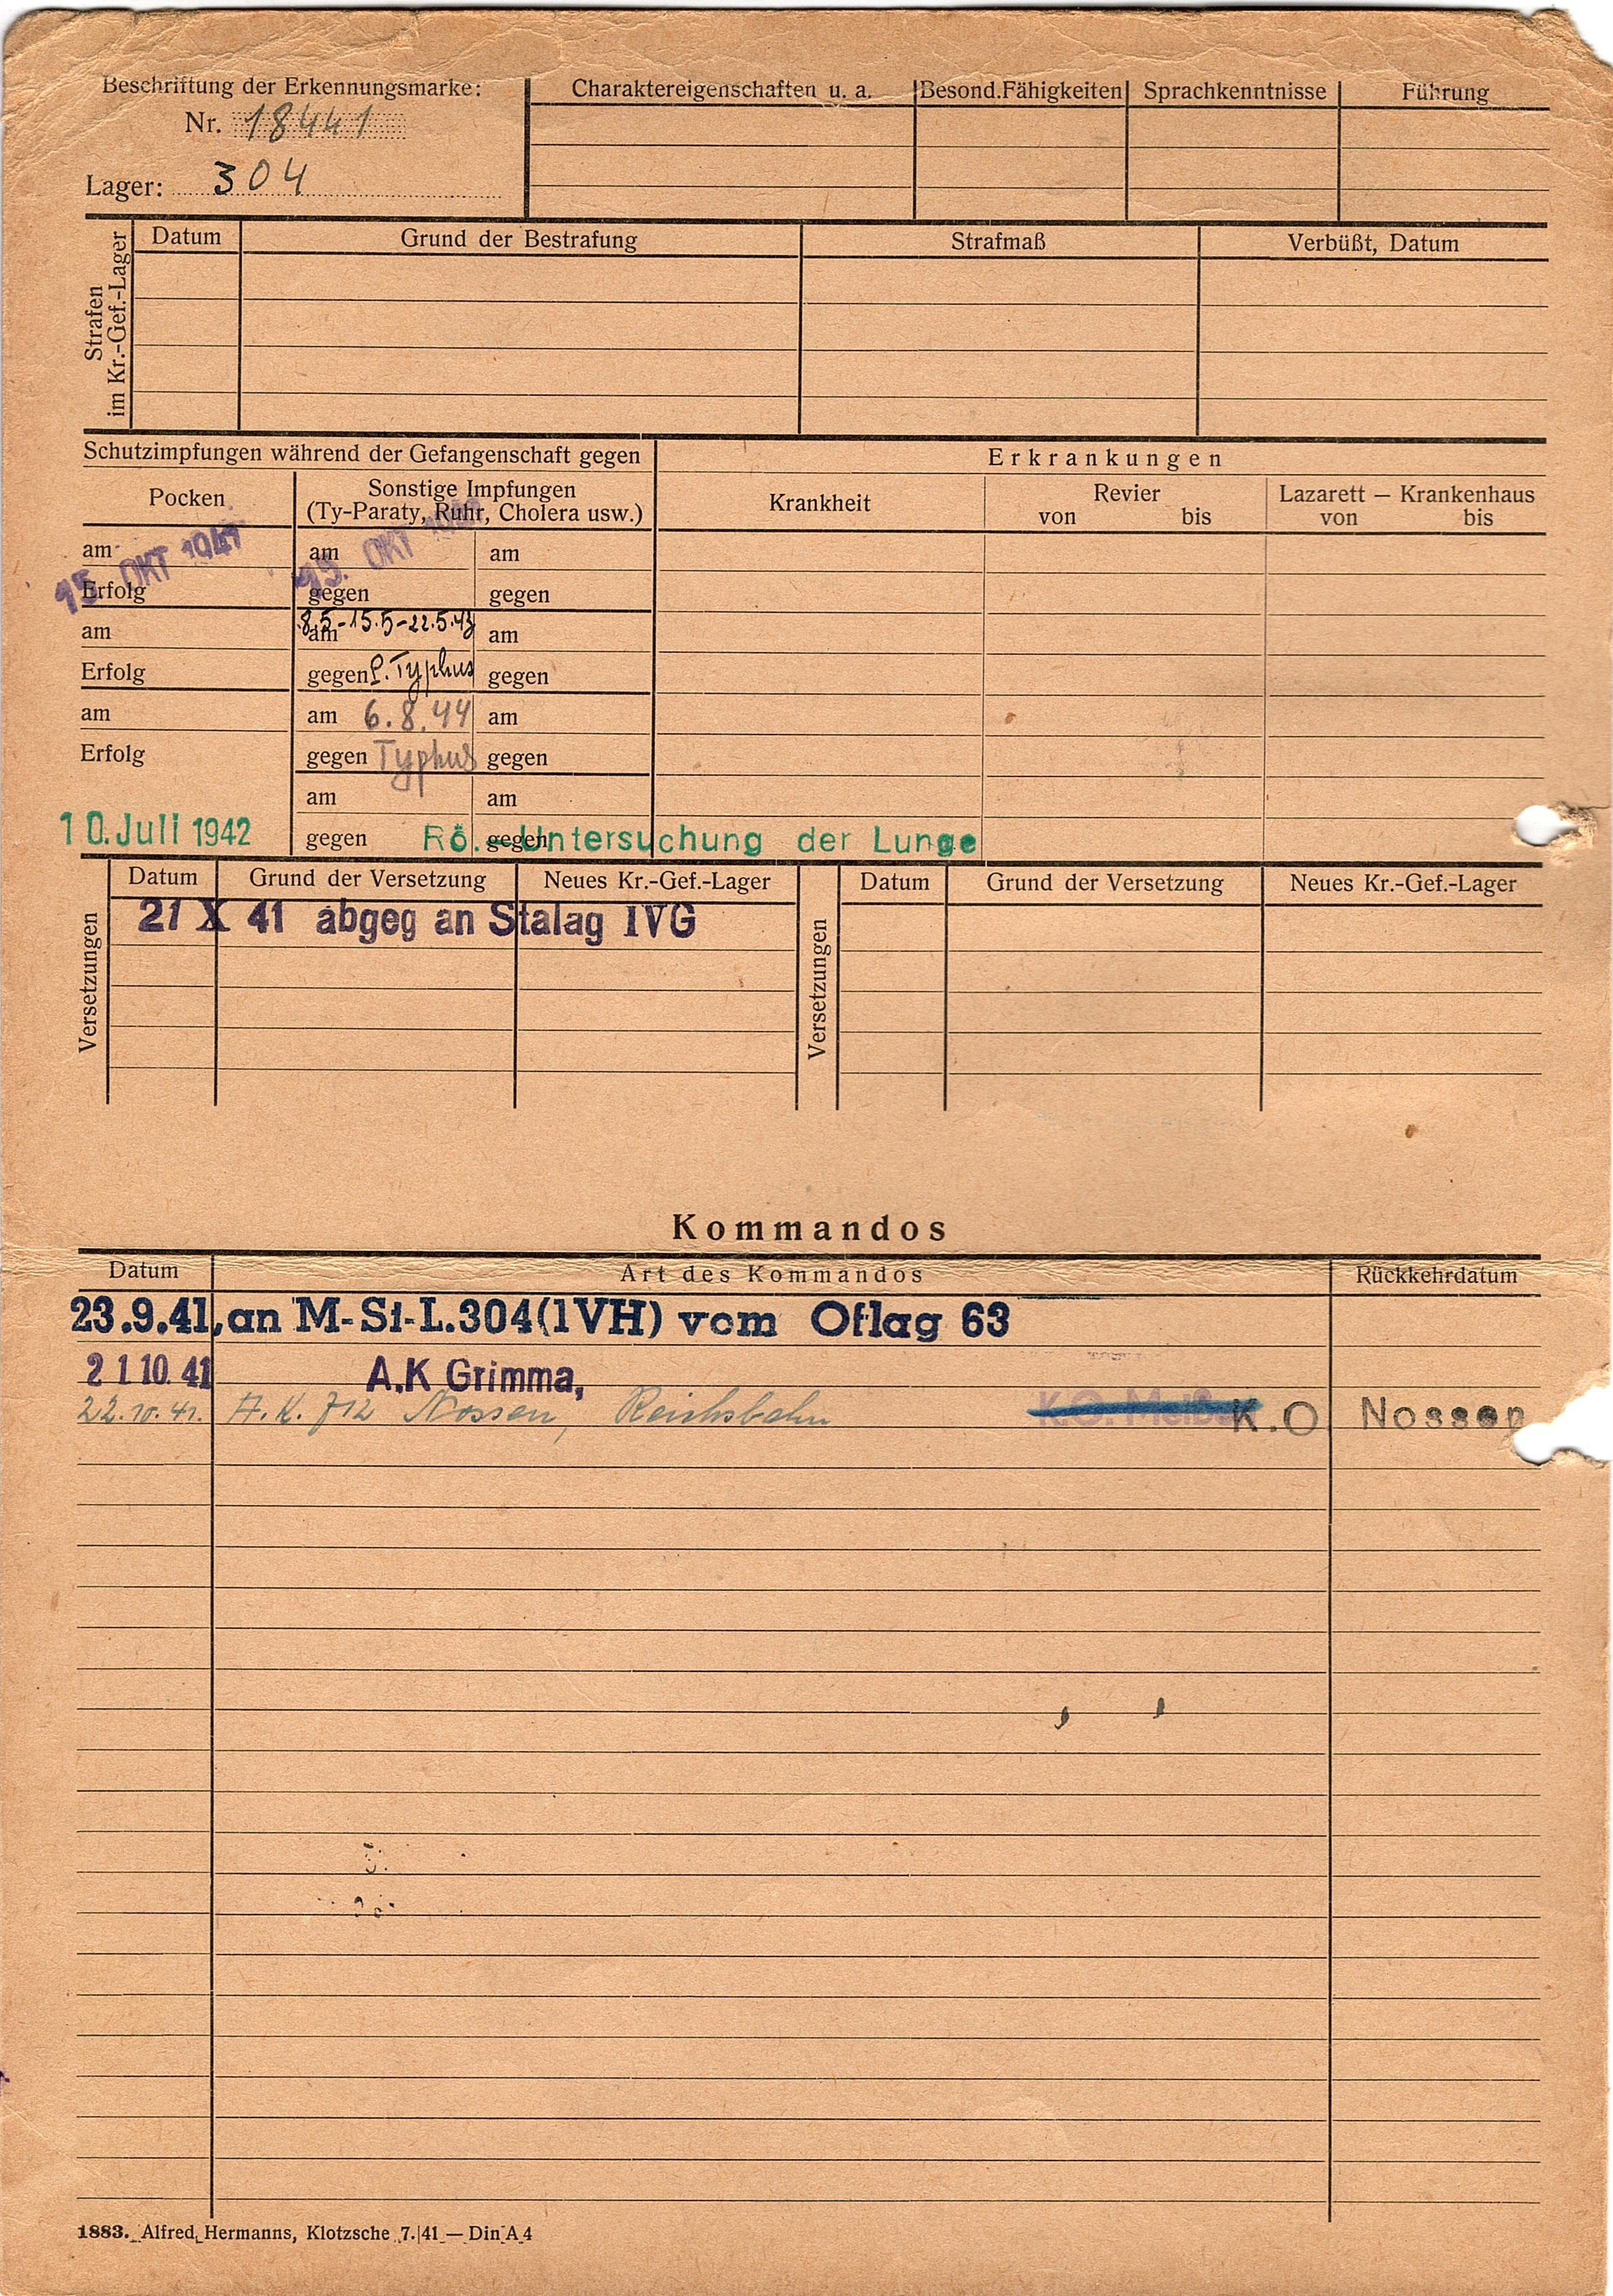 Beschriftung der Erkennungsmarke:
Nr. 18441
Lager: 304
Charaktereigenschaften u. a.
Besond.Fähigkeiten
Sprachkenntnisse
Führung
Strafen
im Kr.-Gef.-Lager
Datum
Grund der Bestrafung
Strafmaß
Verbüßt, Datum
Schutzimpfungen während der Gefangenschaft gegen
Erkrankungen
Pocken
Sonstige Impfungen
(Ty-Paraty, Ruhr, Cholera usw.)
Krankheit
Revier
von bis
Lazarett — Krankenhaus
von bis
am
15. OKT 1941
am
OKT
am
Erfolg
gegen
gegen
am
am 8.5-15.5-22.5.43
am
Erfolg
gegen P. Typhus
gegen
am
am 6.8.44
am
Erfolg
gegen Typhus
gegen
am
am
10. Juli 1942
gegen
gegen
Rö.-Untersuchung der Lunge
Versetzungen
Datum
Grund der Versetzung
Neues Kr.-Gef.-Lager
Versetzungen
Datum
Grund der Versetzung
Neues Kr.-Gef.-Lager
21 X 41 abgeg an Stalag IVG
Kommandos
Datum
Art des Kommandos
Rückkehrdatum
23.9.41, an M-St-L.304(IVH) vom Oflag 63
21 10. 41 A.K Grimma,
22.10.41. A.K. 712 Nossen, Reichsbahn K.O. K.O Nossen
1883. Alfred Hermanns, Klotzsche 7.|41 — Din A 4